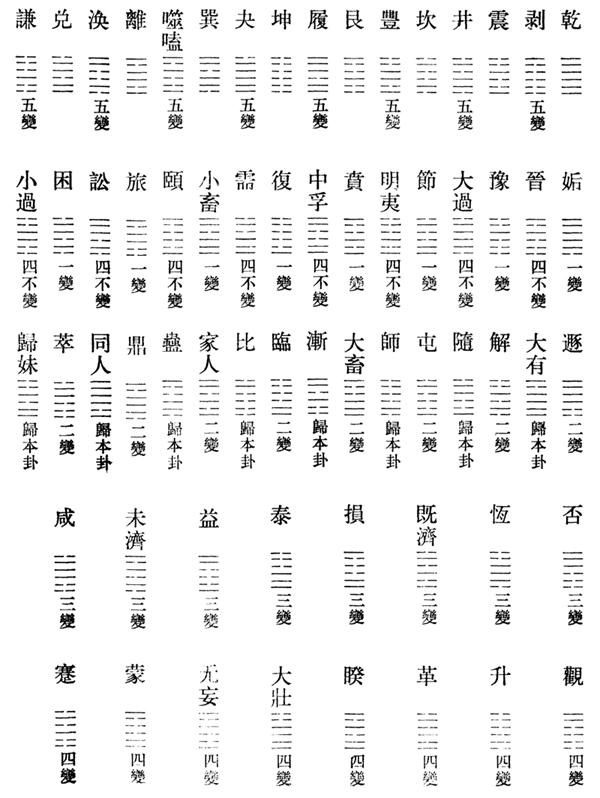 乾 姤 一變 遯 二變 否 三變 觀 四變
剥 五變 晉 四不變 大有 歸本卦
震 豫 一變 解 二變 恆 三變 升 四變
井 五變 大過 四不變 隨 歸本卦
坎 節 一變 屯 二變 既濟 三變 革 四變
豐 五變 明夷 四不變 師 歸本卦
艮 賁 一變 大畜 二變 損 三變 睽 四變
履 五變 中孚 四不變 漸 歸本卦
坤 復 一變 臨 二變 泰 三變 大壯 四變
夬 五變 需 四不變 比 歸本卦
巽 小畜 一變 家人 二變 益 三變 无妄 四變
噬嗑 五變 頤 四不變 蠱 歸本卦
離 旅 一變 鼎 二變 未濟 三變 蒙 四變
渙 五變 訟 四不變 同人 歸本卦
兌 困 一變 萃 二變 咸 三變 蹇 四變
謙 五變 小過 四不變 歸妹 歸本卦